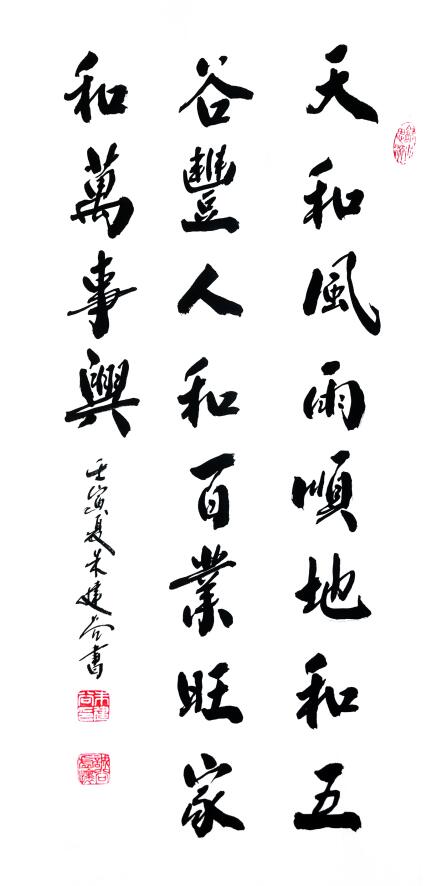 天和風雨順地和五
谷豐人和百業旺家
和萬事興
壬寅夏朱建谷書